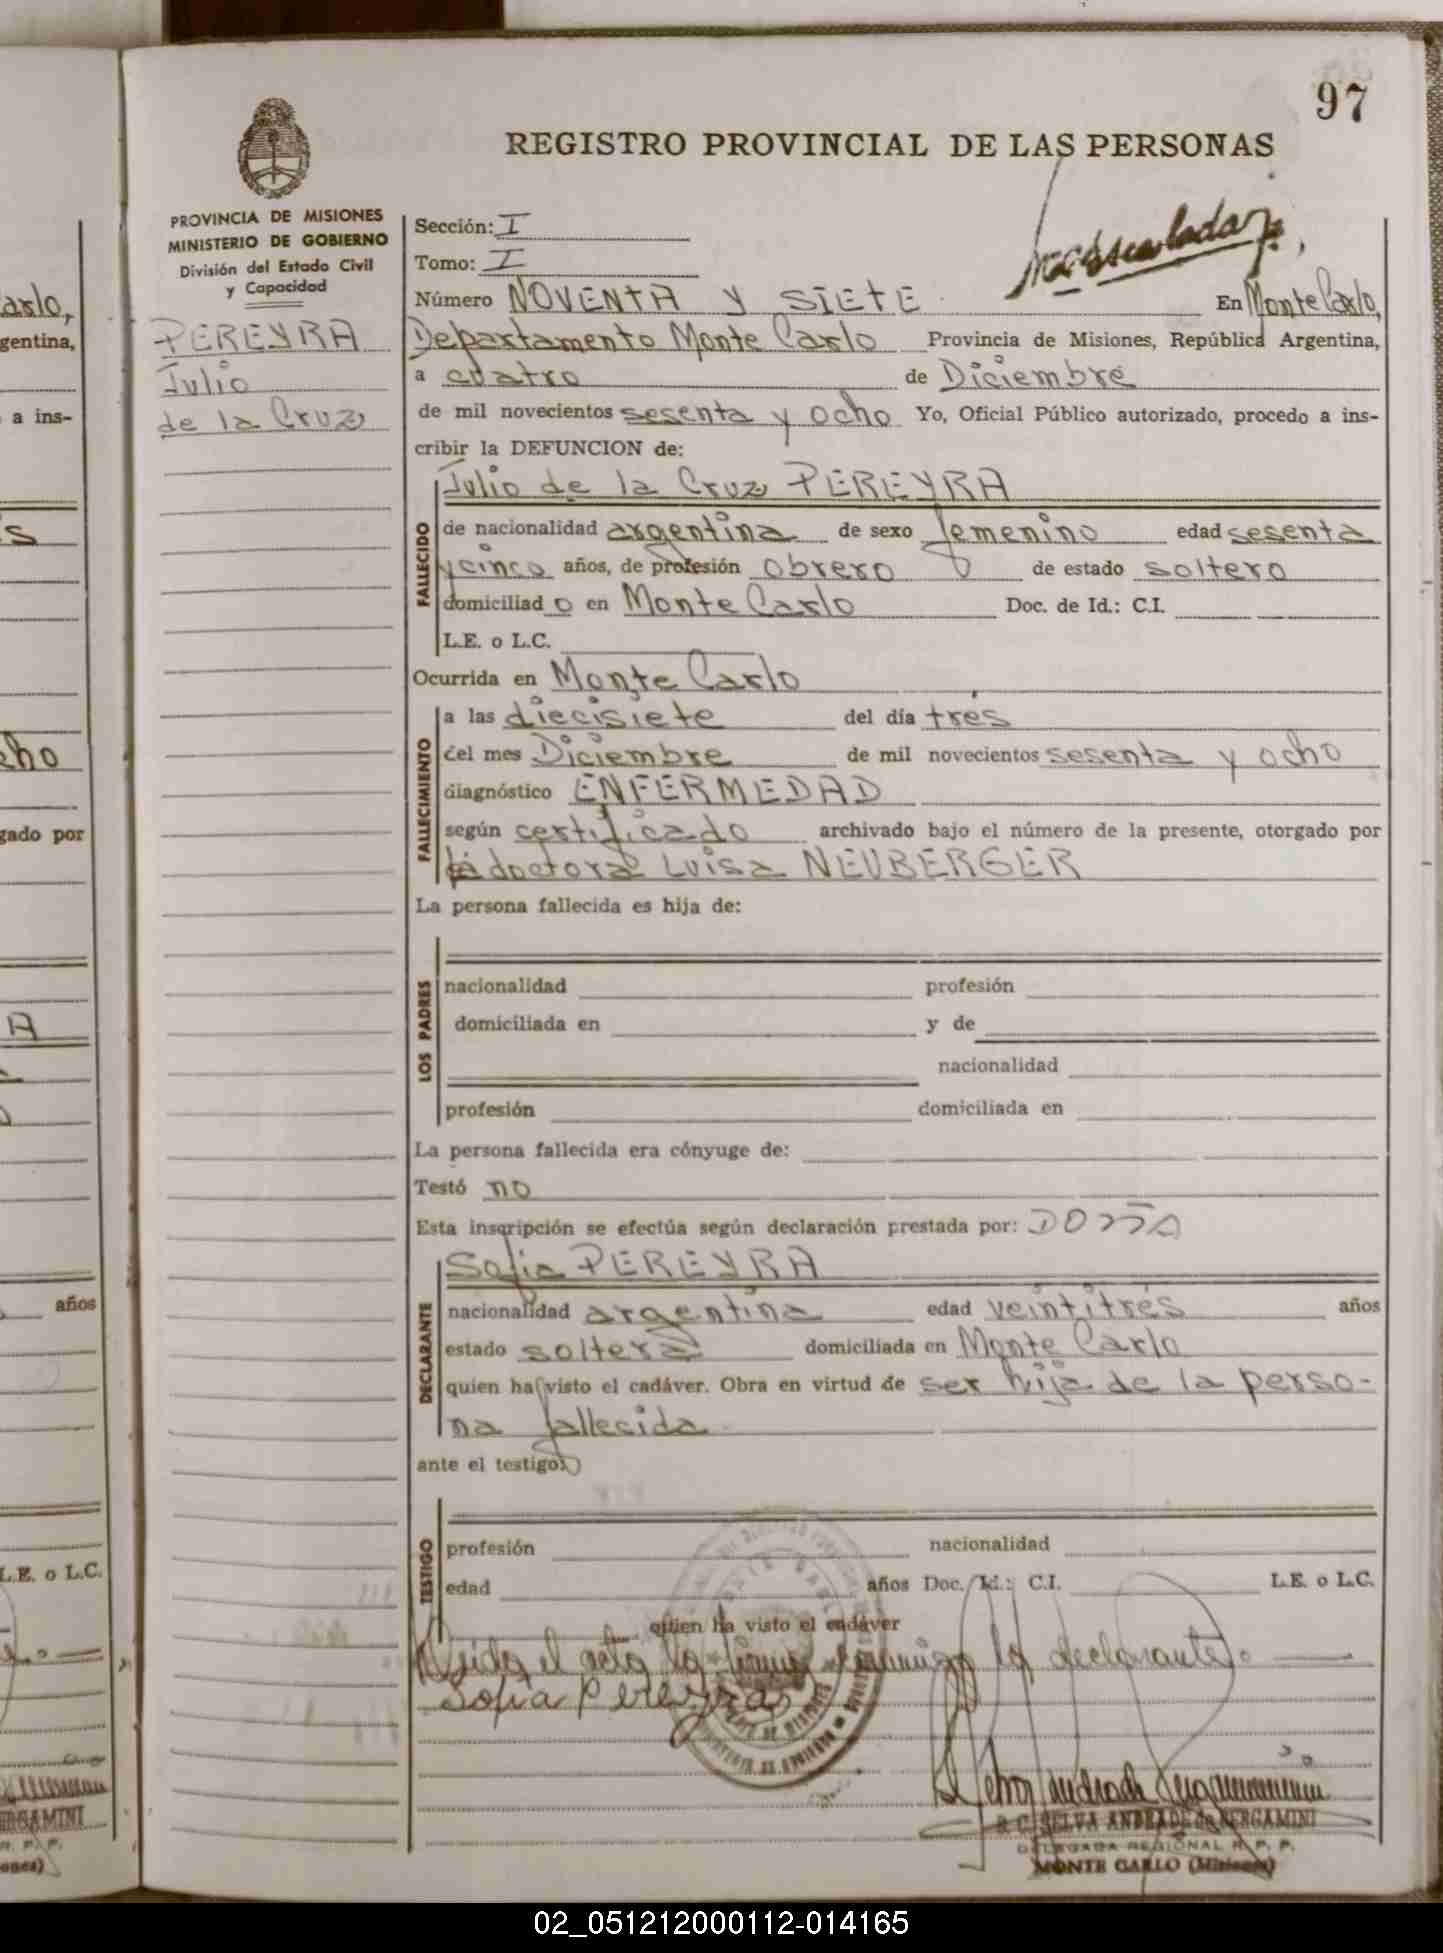 97
REGISTRO PROVINCIAL DE LAS PERSONAS
PROVINCIA DE MISIONES
MINISTERIO DE GOBIERNO
División del Estado Civil
y Capacidad
PEREYRA
Julio
de la Cruz
Sección: I
Tomo: I
Número NOVENTA y SIETE En Monte Carlo,
Departamento Monte Carlo Provincia de Misiones, República Argentina,
a cuatro de Diciembre
de mil novecientos sesenta y ocho Yo, Oficial Público autorizado, procedo a ins-
cribir la DEFUNCION de:
Julio de la Cruz PEREYRA
FALLECIDO
de nacionalidad argentina de sexo femenino edad sesenta
y cinco años, de profesión obrero de estado soltero
domiciliado en Monte Carlo Doc. de Id.: C.I.
L.E. o L.C.
Ocurrida en Monte Carlo
FALLECIMIENTO
a las diecisiete del día tres
del mes Diciembre de mil novecientos sesenta y ocho
diagnóstico ENFERMEDAD
según certificado archivado bajo el número de la presente, otorgado por
la doctora Luisa NEUBERGER
La persona fallecida es hija de:
LOS PADRES
nacionalidad profesión
domiciliada en y de
nacionalidad
profesión domiciliada en
La persona fallecida era cónyuge de:
Testó no
Esta inscripción se efectúa según declaración prestada por: DOÑA
Sofia PEREYRA
DECLARANTE
nacionalidad argentina edad veintitrés años
estado soltera domiciliada en Monte Carlo
quien ha visto el cadáver. Obra en virtud de ser hija de la perso-
na fallecida
ante el testigo:
TESTIGO
profesión nacionalidad
edad años Doc. Id.: C.I. L.E. o L.C.
quien ha visto el cadáver
Leida el acta la firma conmigo la declarante.
Sofia Pereyra
SELVA ANDRADE de BERGAMINI
DELEGADA REGIONAL R. P. P.
MONTE CARLO (Misiones)
arlo,
gentina,
a ins-
cho
gado por
A
años
L.E. o L.C.
BERGAMINI
R. P. P.
ones)
02_051212000112-014165